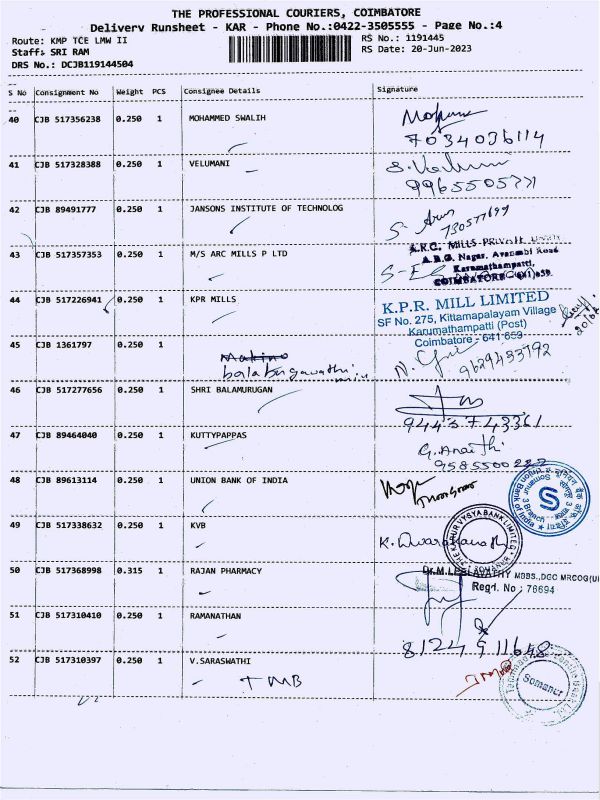 THE PROFESSIONAL COURIERS, COIMBATORE
Delivery Runsheet - KAR - Phone No.:0422-3505555 - Page No.:4
Route: KMP TCE LMW II
RS No.: 1191445
Staff: SRI RAM
RS Date: 20-Jun-2023
DRS No.: DCJB119144504
S No Consignment No Weight PCS Consignee Details Signature
40 CJB 517356238 0.250 1 MOHAMMED SWALIH
7034036114
41 CJB 517328388 0.250 1 VELUMANI
42 CJB 89491777 0.250 1 JANSONS INSTITUTE OF TECHNOLOG
43 CJB 517357353 0.250 1 M/S ARC MILLS P LTD
A.R.C. MILLS PRIVATE
Nagar, Road
Karumathampatti,
COIMBATORE
44 CJB 517226941 0.250 1 KPR MILLS
K.P.R. MILL LIMITED
SF No. 275, Kittamapalayam Village
Karumathampatti (Post)
Coimbatore - 641 659
45 CJB 1361797 0.250 1
9629433792
46 CJB 517277656 0.250 1 SHRI BALAMURUGAN
9443743361
47 CJB 89464040 0.250 1 KUTTYPAPPAS
9585500222
48 CJB 89613114 0.250 1 UNION BANK OF INDIA
Union Bank of India
Somanur
Branch
49 CJB 517338632 0.250 1 KVB
THE KARUR VYSYA BANK LIMITED
SOMANUR
50 CJB 517368998 0.315 1 RAJAN PHARMACY
MBBS.,DGO MRCOG(U
Regd. No : 76694
51 CJB 517310410 0.250 1 RAMANATHAN
8124911648
52 CJB 517310397 0.250 1 V.SARASWATHI
TMB
Somanur